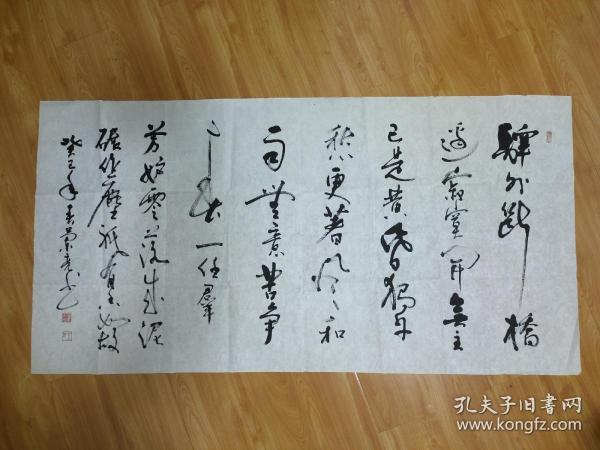 驛外斷橋
邊寂寞開無主
已是黄昏獨自
愁更著風和
雨無意苦爭
春一任群
芳妒零落成泥
碾作塵祇有香如故
癸巳年春
孔夫子旧书网
www.kongfz.com